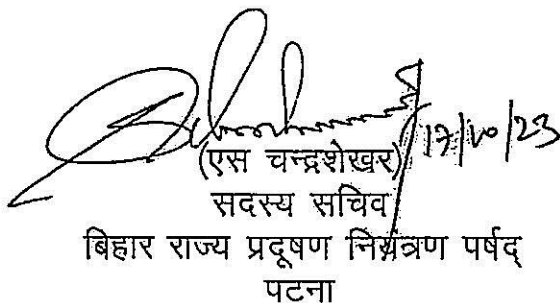 17/10/23
(एस चन्द्रशेखर)
सदस्य सचिव
बिहार राज्य प्रदूषण नियंत्रण पर्षद्
पटना